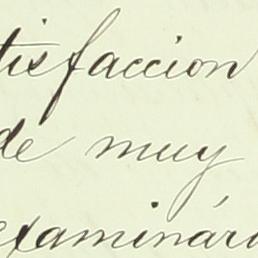 tisfaccion
de muy
examinár